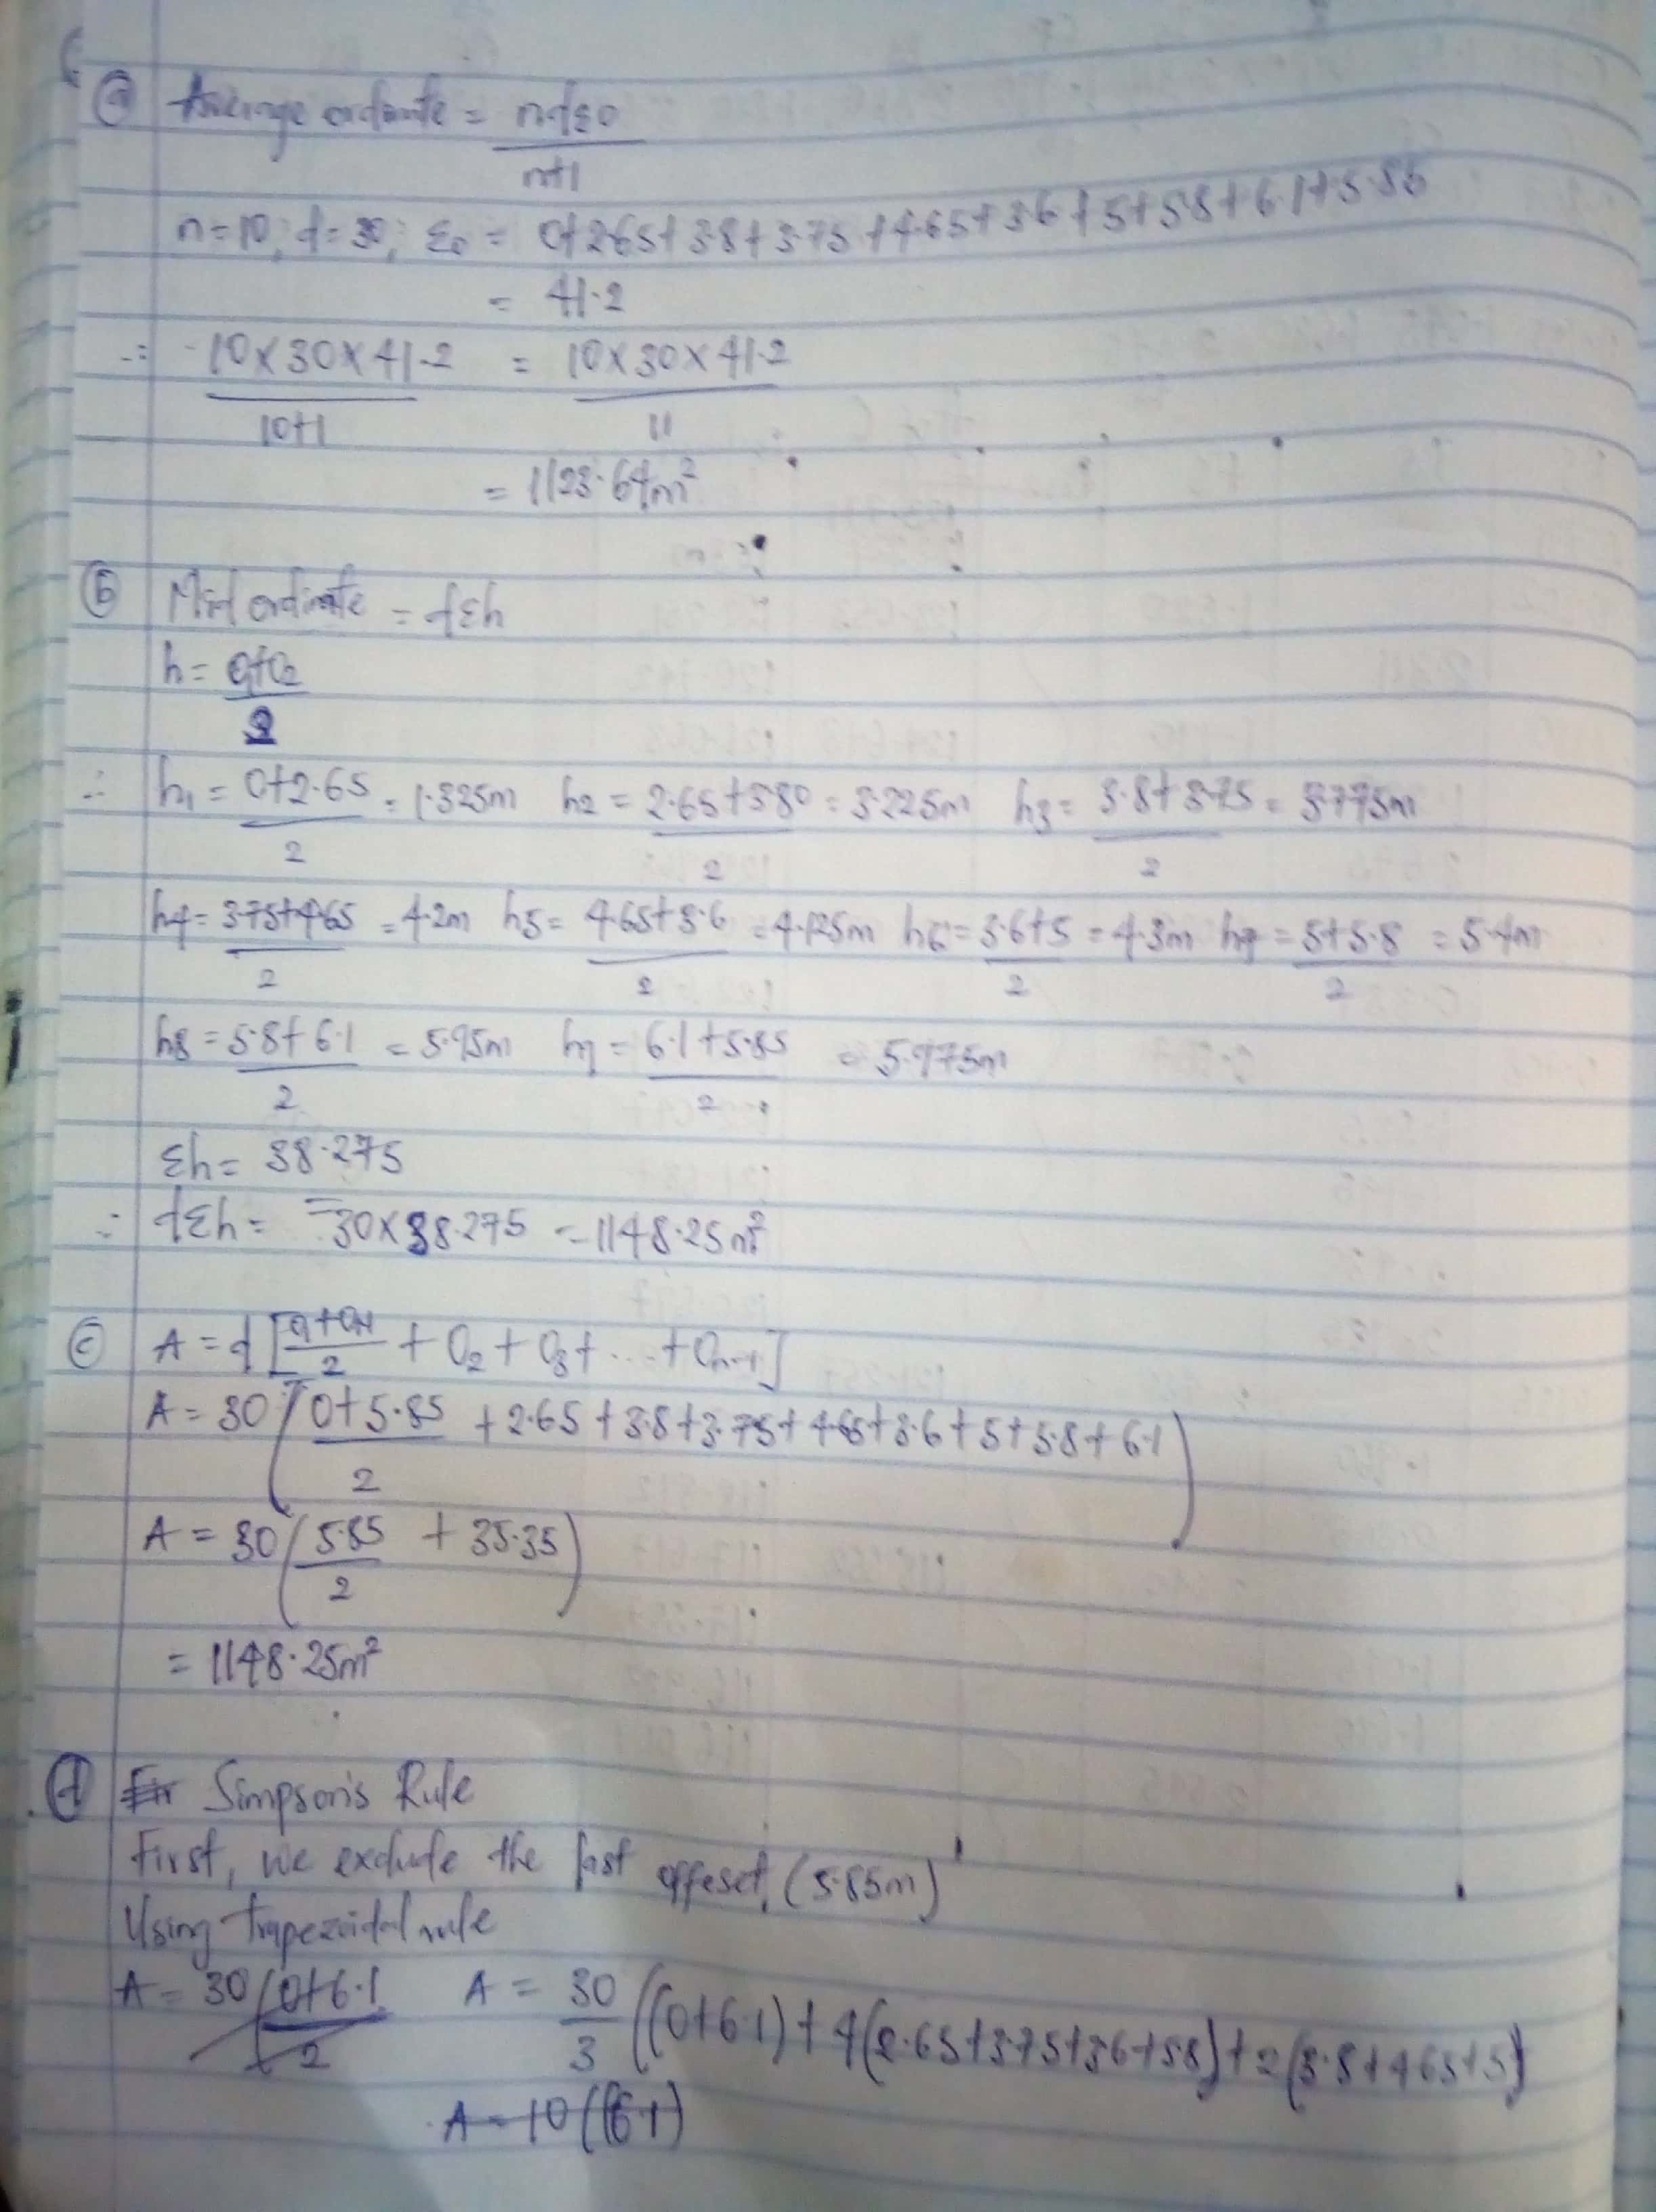 (a) Average ordinate = ndΣo / n+1
n=10; d=30; Σo = 0+2.65+3.8+3.75+4.65+3.6+5+5.8+6.1+5.85
= 41.2
∴ 10×30×41.2 / 10+1 = 10×30×41.2 / 11
= 1123.64m²
(b) Mid ordinate = dΣh
h = O₁+O₂ / 2
∴ h₁ = 0+2.65 / 2 = 1.325m h₂ = 2.65+3.80 / 2 = 3.225m h₃ = 3.8+3.75 / 2 = 3.775m
h4 = 3.75+4.65 / 2 = 4.2m h5 = 4.65+3.6 / 2 = 4.125m h6 = 3.6+5 / 2 = 4.3m h7 = 5+5.8 / 2 = 5.4m
h8 = 5.8+6.1 / 2 = 5.95m h9 = 6.1+5.85 / 2 = 5.975m
Σh = 38.275
∴ dΣh = 30×38.275 = 1148.25m²
(c) A = d[O₁+On / 2 + O₂ + O₃ + ... + On-1]
A = 30(0+5.85 / 2 + 2.65+3.8+3.75+4.65+3.6+5+5.8+6.1)
A = 30(5.85 / 2 + 35.35)
= 1148.25m²
(d) Simpson's Rule
First, we exclude the last offeset, (5.85m)
Using trapezoidal rule
A = 30(0+6.1 / 2 A = 30 / 3 ((0+6.1)+4(2.65+3.75+3.6+5.8)+2(3.8+4.65+5)
A = 10((6.1)